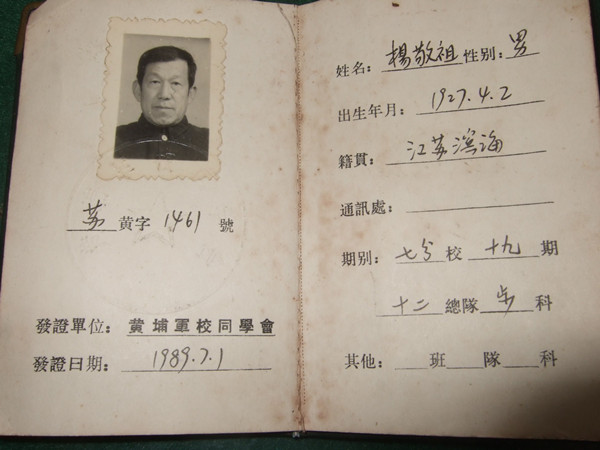 苏黄字1461號
發證單位：黄埔軍校同學會
發證日期：1989.7.1
姓名：楊敬祖性别：男
出生年月：1927.4.2
籍貫：江苏滨海
通訊處：
期别：七分校十九期
十二總隊步科
其他：班隊科